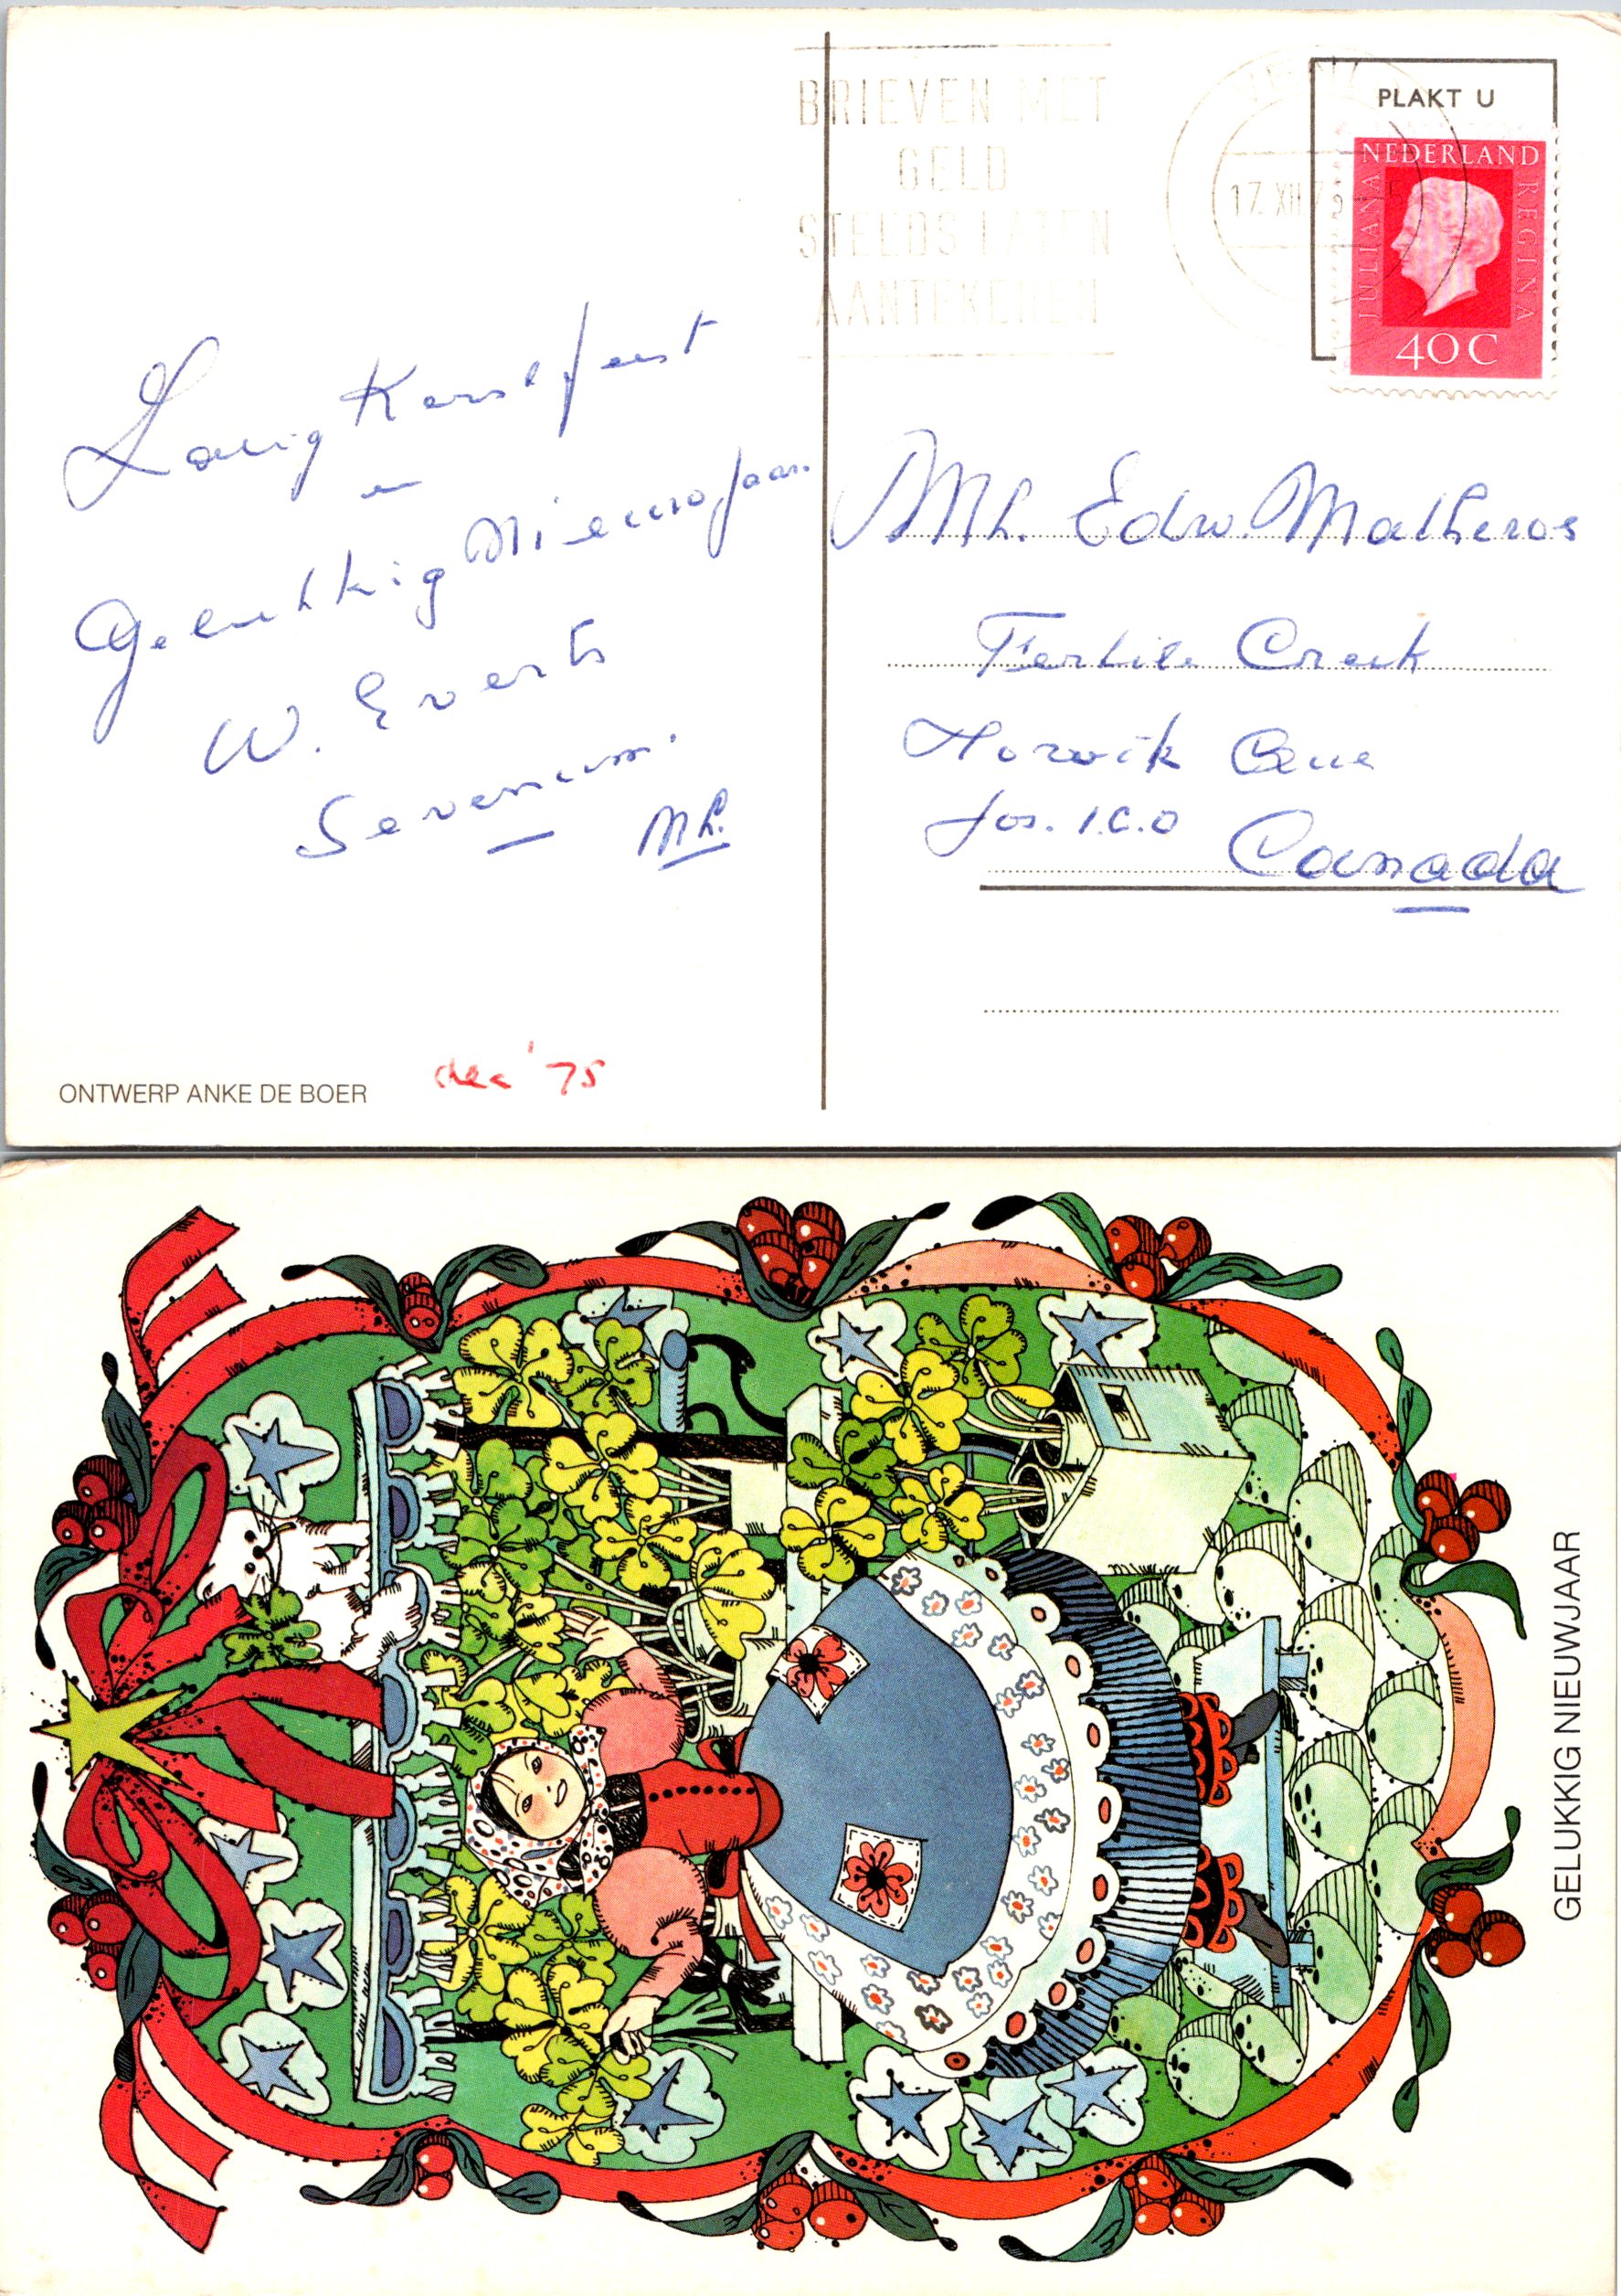 BRIEVEN MET
GELD
STEEDS LATEN
AANTEKENEN
17 XII 75
PLAKT U
NEDERLAND
JULIANA
REGINA
40 C
Zalig Kerstfeest
en
Gelukkig Nieuwjaar.
W. Everts
Sevenum.
NL.
Edw. Matheros
Fertile Creek
Canada
ONTWERP ANKE DE BOER
dec '75
GELUKKIG NIEUWJAAR